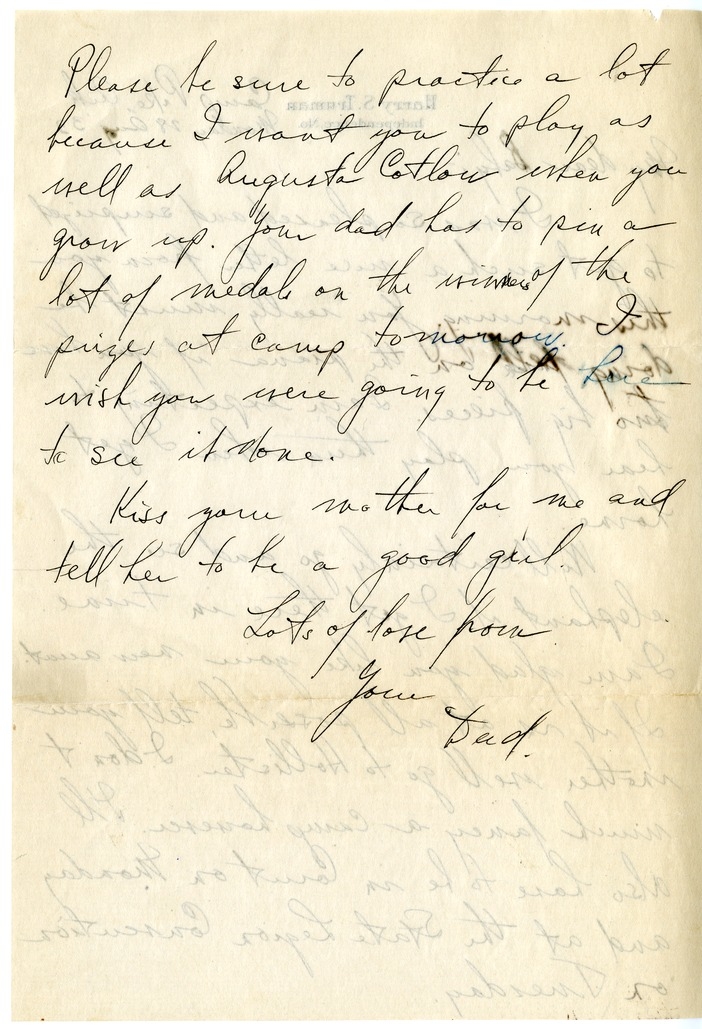 Please be sure to practice a lot
because I want you to play as
well as Augusta Cotlow when you
grow up. Your dad has to pin a
lot of medals on the winners of the
prizes at camp tomorrow. I
wish you were going to be here
to see it done.
Kiss your mother for me and
tell her to be a good girl.
Lots of love from
Your
Dad.